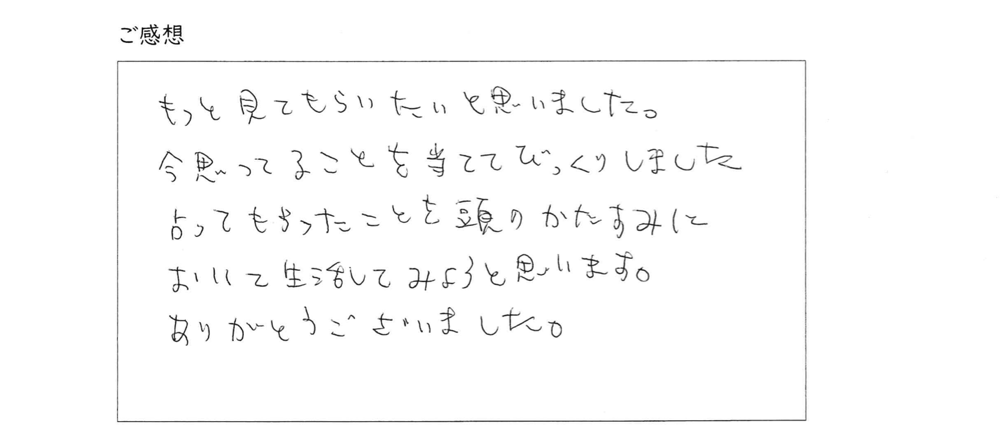 ご感想
もっと見てもらいたいと思いました。
今思ってることを当ててびっくりしました
占ってもらったことを頭のかたすみに
おいて生活してみようと思います。
ありがとうございました。